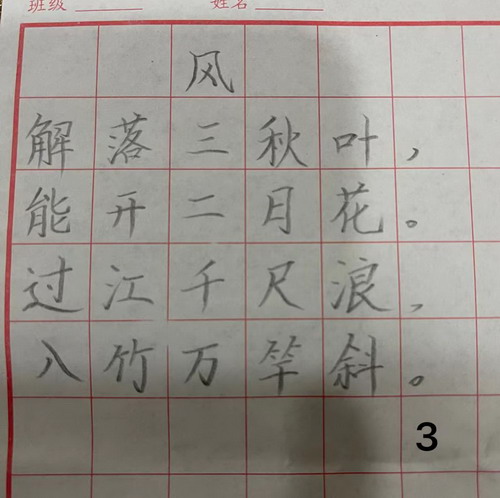 班级
姓名
风
解落三秋叶，
能开二月花。
过江千尺浪，
入竹万竿斜。
3